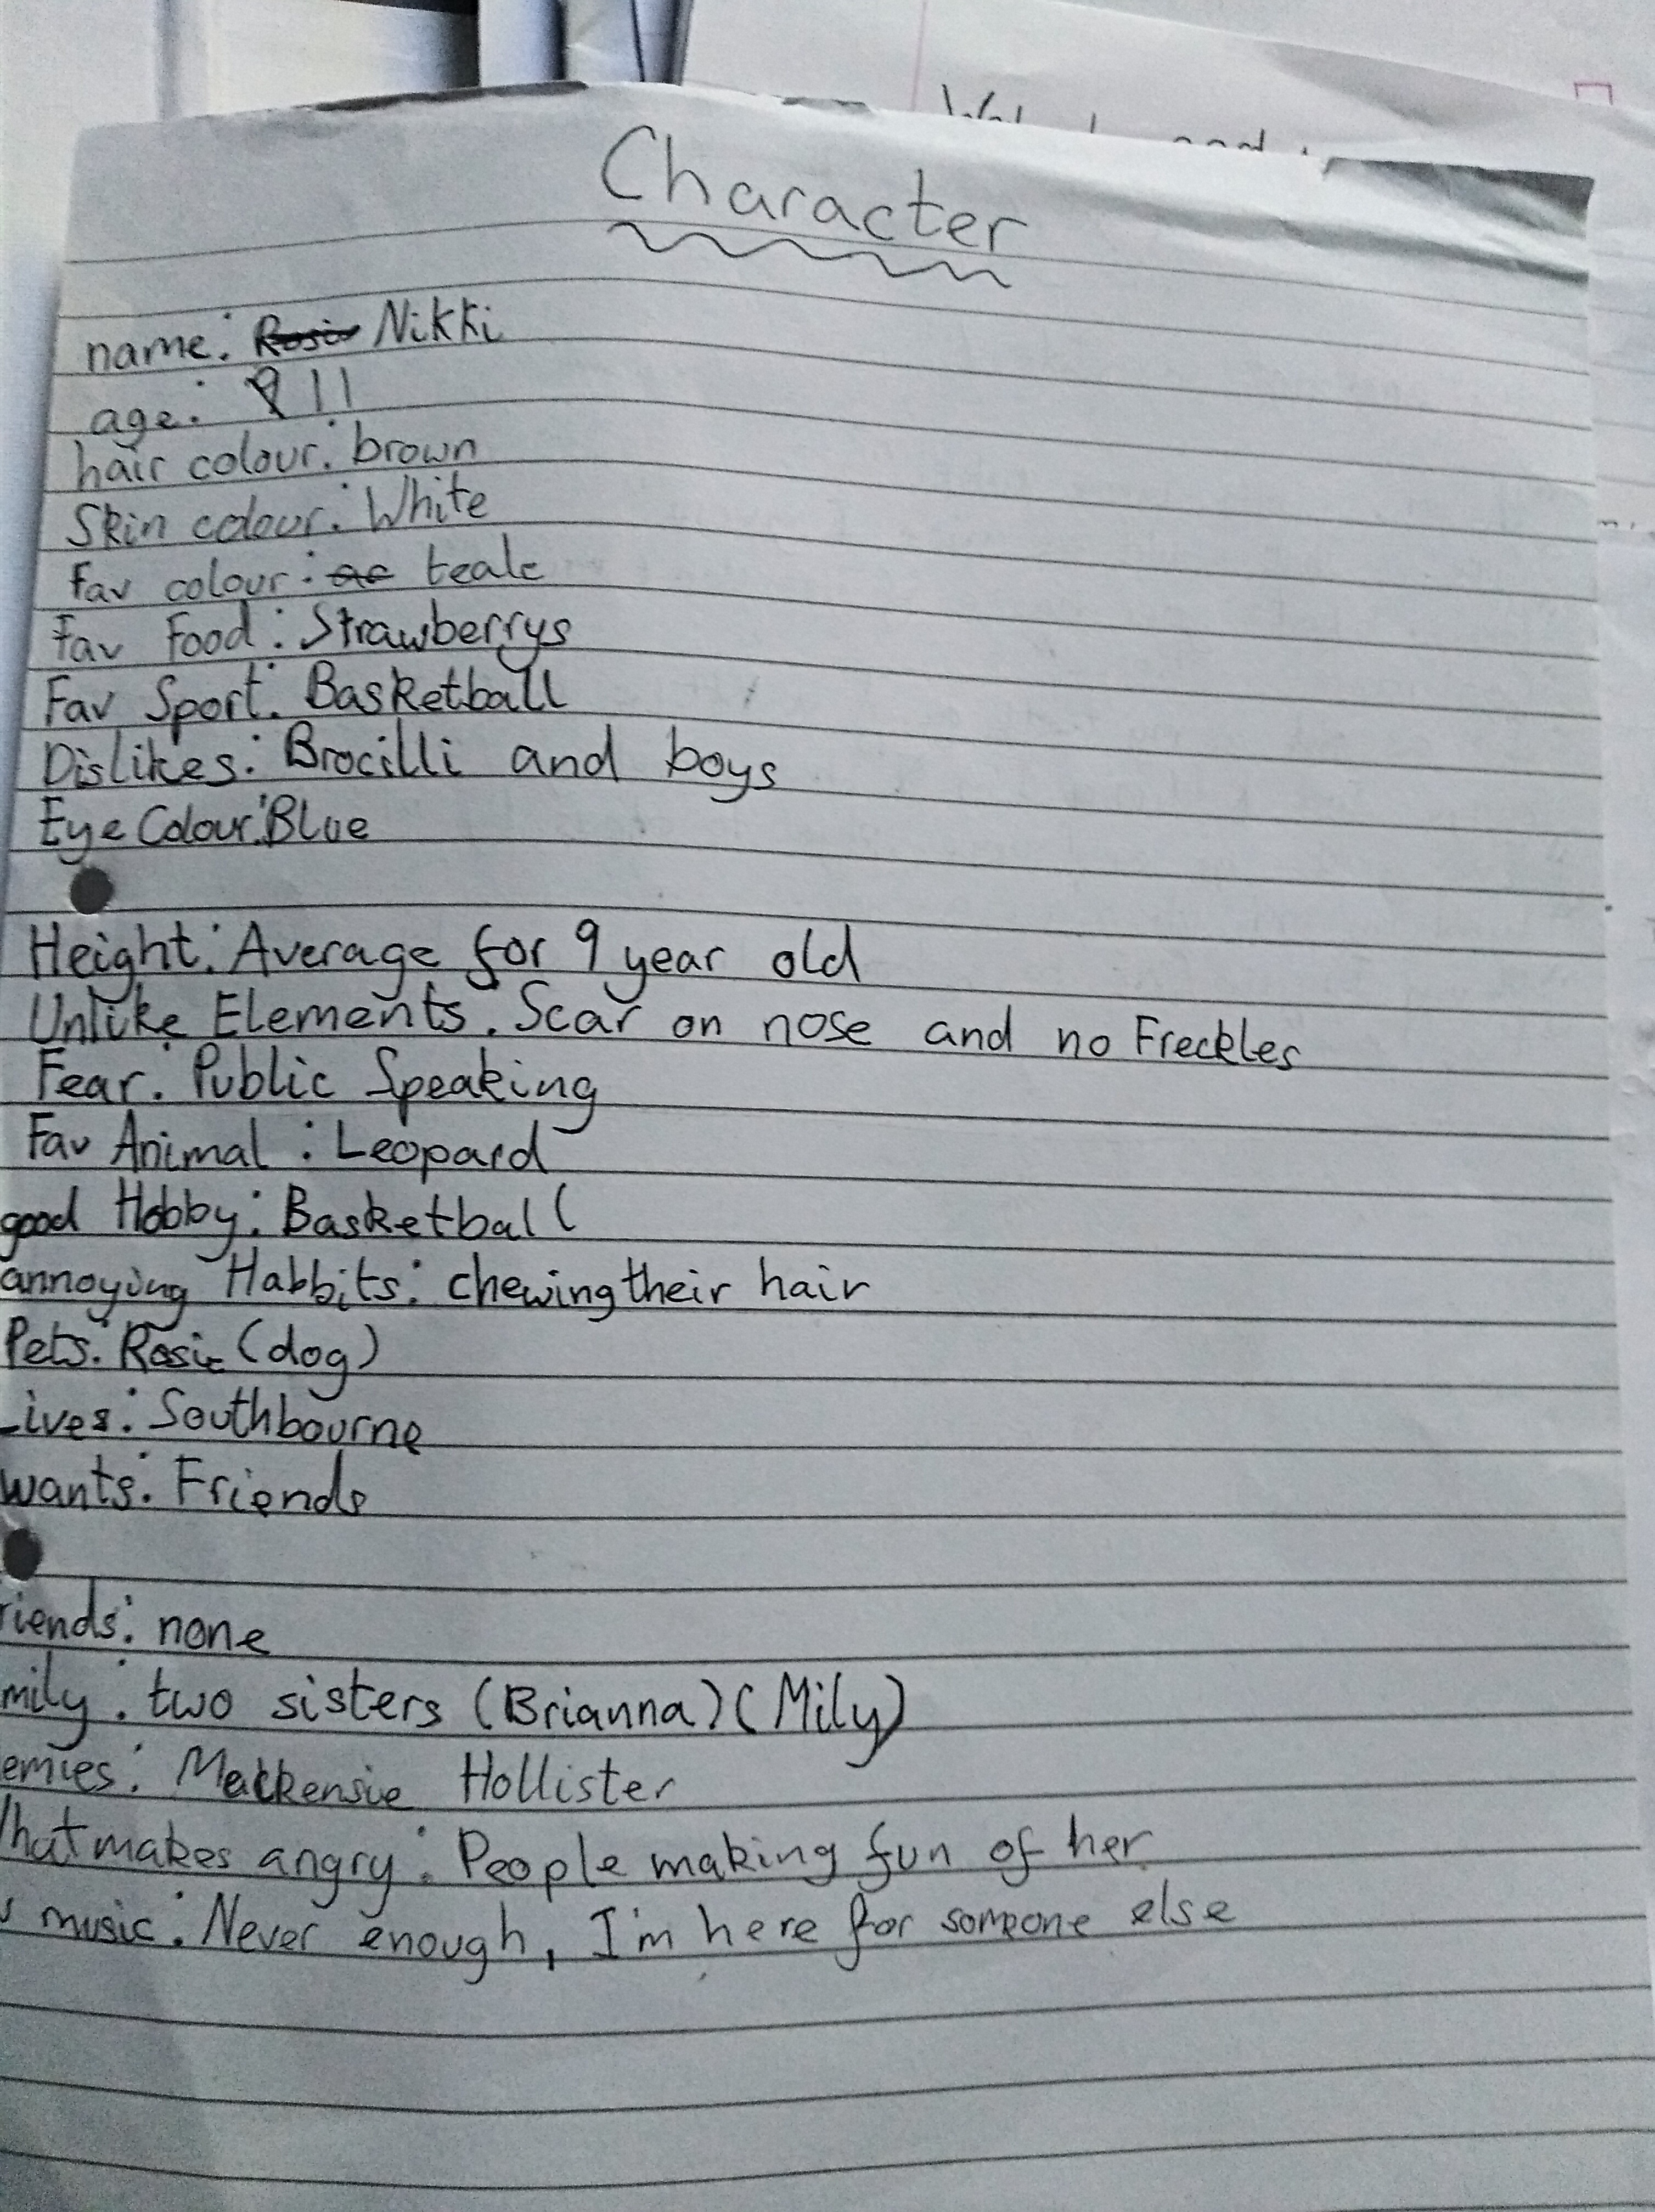 Character
name: Nikki
age: 11
hair colour: brown
Skin colour: White
Fav colour: teale
Fav Food: Strawberrys
Fav Sport: Basketball
Dislikes: Brocilli and boys
Eye Colour: Blue
Height: Average for 9 year old
Unlike Elements: Scar on nose and no Freckles
Fear: Public Speaking
Fav Animal: Leopard
good Hobby: Basketball
annoying Habbits: chewing their hair
Pets: Rosie (dog)
Lives: Southbourne
wants: Friends
riends: none
mily: two sisters (Brianna) (Mily)
emies: Mackensie Hollister
hat makes angry: People making fun of her
music: Never enough, I'm here for someone else